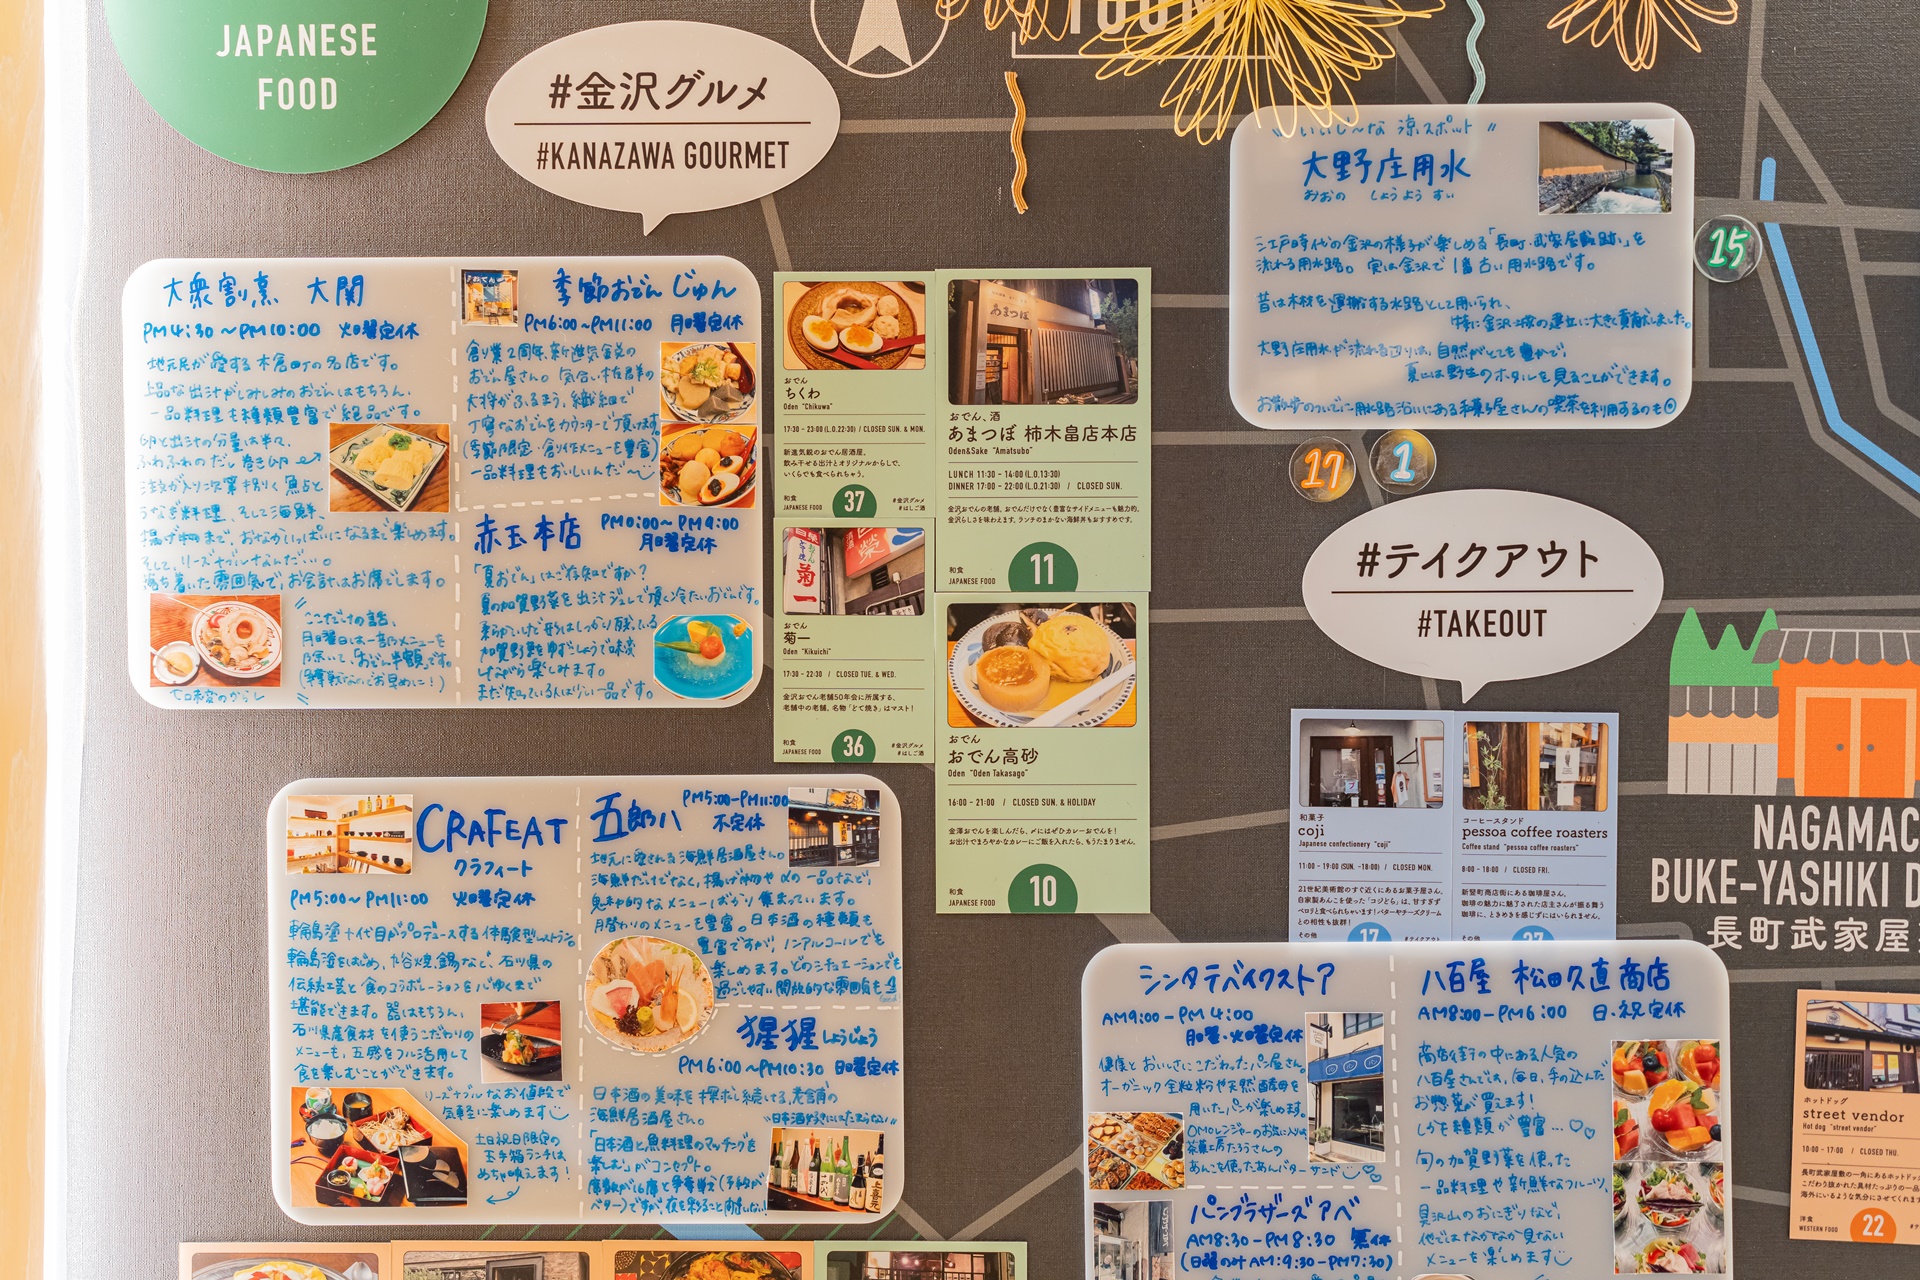 JAPANESE
FOOD
#金沢グルメ
#KANAZAWA GOURMET
大衆割烹 大関
PM4:30〜PM10:00 火曜定休
地元民が愛する木倉町の名店です。
上品な出汁がしみしみのおでんはもちろん、
一品料理も種類豊富で絶品です。
卵と出汁の分量は半々、
ふわふわのだし巻き卵
注文が入り次第捌く魚と
うなぎ料理、そして海鮮、
揚げ物まで、おなかいっぱいになるまで楽しめます。
そして、リーズナブルなんだ…。
落ち着いた雰囲気で、お会計はお席でします。
ここだけの話、
月曜日は一部メニューを
除いて、「おでん半額」です。
季節おでん じゅん
PM6:00〜PM11:00 月曜定休
創業2周年、新進気鋭の
おでん屋さん。
大将がふるまう、繊細で
丁寧なおでんをカウンターで頂けます。
(季節限定・創作メニューも豊富)
一品料理もおいしいんだ〜
赤玉本店
PM0:00〜PM9:00
月曜定休
「夏おでん」はご存知ですか?
夏の加賀野菜を出汁ジュレで頂く冷たいおでんです。
柔らかいけど形はしっかり残っている
加賀野菜をゆずこしょうで味変
しながら楽しみます。
まだ知っている人は少ない一品です。
おでん
ちくわ
Oden "Chikuwa"
17:30 - 23:00 (L.O.22:30) / CLOSED SUN. & MON.
新進気鋭のおでん居酒屋。
飲み干せる出汁とオリジナルからしで、
いくらでも食べられちゃう。
和食
JAPANESE FOOD
37
#金沢グルメ
#はしご酒
おでん、酒
あまつぼ 柿木畠店本店
Oden&Sake "Amatsubo"
LUNCH 11:30 - 14:00 (L.O.13:30)
DINNER 17:00 - 22:00 (L.O.21:30) / CLOSED SUN.
金沢おでんの老舗。おでんだけでなく豊富なサイドメニューも魅力的。
金沢らしさを味わえます。ランチのまかない海鮮丼もおすすめです。
和食
JAPANESE FOOD
11
あまつぼ
菊一
おでん
菊一
Oden "Kikuichi"
17:30 - 22:30 / CLOSED TUE. & WED.
金沢おでん老舗50年会に所属する、
老舗中の老舗。名物「どて焼き」はマスト!
和食
JAPANESE FOOD
36
#金沢グルメ
#はしご酒
おでん
おでん高砂
Oden "Oden Takasago"
16:00 - 21:00 / CLOSED SUN. & HOLIDAY
金澤おでんを楽しんだら、〆にはぜひカレーおでんを!
お出汁でまろやかなカレーにご飯を入れたら、もうたまりません。
和食
JAPANESE FOOD
10
涼スポット
大野庄用水
おおの しょうようすい
江戸時代の金沢の様子が楽しめる「長町・武家屋敷跡」を
流れる用水路。実は金沢で1番古い用水路です。
昔は木材を運搬する水路として用いられ、
特に金沢城の建立に大きく貢献しました。
大野庄用水が流れる辺りは、自然がとても豊かで、
夏には野生のホタルを見ることができます。
お散歩のついでに用水路沿いにある和菓子屋さんの喫茶を利用するのも◎
15
17
1
#テイクアウト
#TAKEOUT
和菓子
coji
Japanese confectionery "coji"
11:00 - 19:00 (SUN. -18:00) / CLOSED MON.
21世紀美術館のすぐ近くにあるお菓子屋さん。
自家製あんこを使った「コジどら」は、甘すぎず
ペロリと食べられちゃいます!バターやチーズクリーム
との相性も抜群!
その他
17
#テイクアウト
コーヒースタンド
pessoa coffee roasters
Coffee stand "pessoa coffee roasters"
8:00 - 18:00 / CLOSED FRI.
新竪町商店街にある珈琲屋さん。
珈琲の魅力に魅了された店主さんが振る舞う
珈琲に、ときめきを感じずにはいられません。
その他
NAGAMAC
BUKE-YASHIKI D
長町武家屋
CRAFEAT
クラフィート
PM5:00〜PM11:00 火曜定休
輪島塗十代目がプロデュースする体験型レストラン。
輪島塗をはじめ、九谷焼、錫など、石川県の
伝統工芸と食のコラボレーションを心ゆくまで
堪能できます。器はもちろん、
石川県産食材を使うこだわりの
メニューも、五感をフル活用して
食を楽しむことができます。
リーズナブルなお値段で
気軽に楽しめます
土日祝日限定の
玉手箱ランチは
めちゃ映えます!
五郎八
PM5:00-PM11:00
不定休
地元に愛される海鮮居酒屋さん。
海鮮だけでなく、揚げ物や〆の一品など、
魅力的なメニューばかり集まっています。
月替わりのメニューも豊富。日本酒の種類も
豊富ですが、ノンアルコールでも
楽しめます。どのシチュエーションでも
過ごしやすい開放的な雰囲気も
猩猩 しょうじょう
PM6:00〜PM10:30 日曜定休
日本酒の美味を探求し続ける、老舗の
海鮮居酒屋さん。
"日本酒好きにはたまらない"
「日本酒と魚料理のマッチングを
楽しむ」がコンセプト。
シンタテベイクストア
AM9:00-PM4:00
月曜・火曜定休
健康とおいしさにこだわったパン屋さん。
オーガニック全粒粉や天然酵母を
用いたパンが楽しめます。
OMOレンジャーのお気に入りは、
茶菓工房たろうさんの
あんこを使ったあんバターサンド
パンブラザーズアベ
AM8:30-PM8:30 無休
(日曜のみAM:9:30-PM7:30)
八百屋 松田久直商店
AM8:00-PM6:00 日・祝定休
商店街の中にある人気の
八百屋さんでは、毎日、手の込んだ
お惣菜が買えます!
しかも種類が豊富…♡♡
旬の加賀野菜を使った
一品料理や新鮮なフルーツ、
貝沢山のおにぎりなど、
他ではなかなか見ない
メニューを楽しめます
ホットドッグ
street vendor
Hot dog "street vendor"
10:00 - 17:00 / CLOSED THU.
洋食
WESTERN FOOD
22